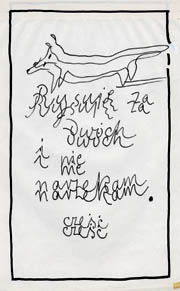 Rysuję za
dwóch
i nie
narzekam.
cześć